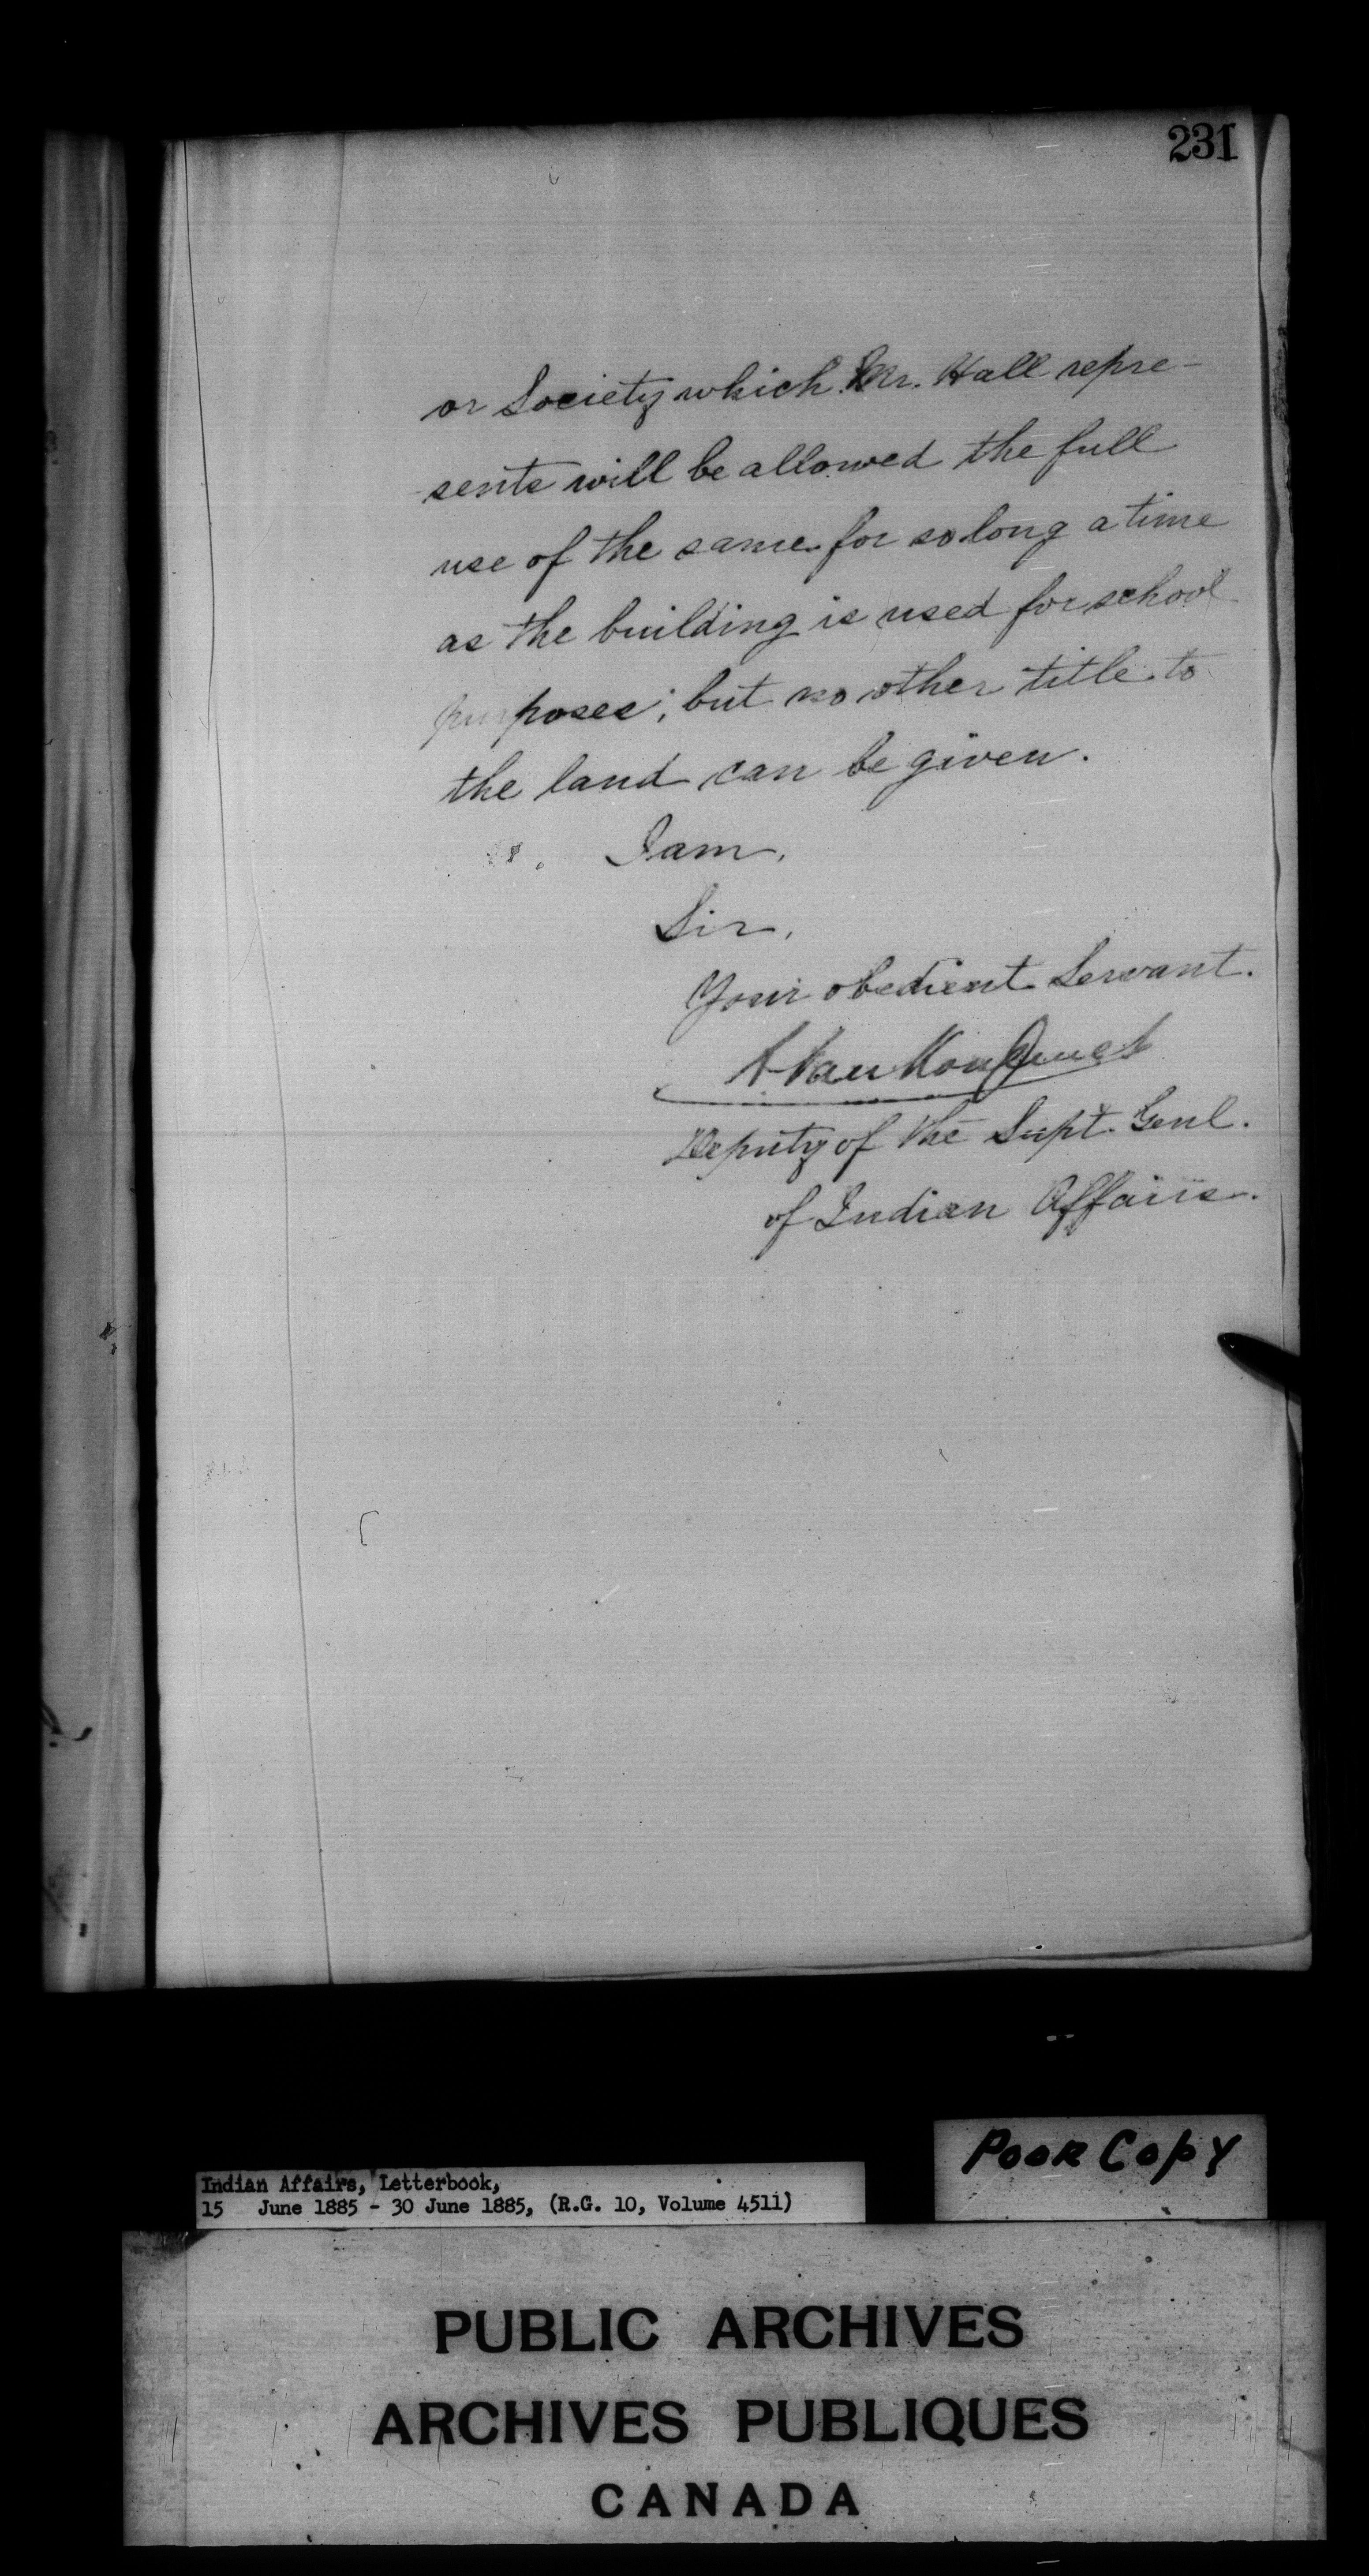 231
or Society which Mr. Hall repre-
sents will be allowed the full
use of the same for so long a time
as the building is used for school
purposes; but no other title to
the land can be given.
I am,
Sir,
Your obedient Servant.
L. VanKoughnet
Deputy of the Supt. Genl.
of Indian Affairs.
Poor Copy
Indian Affairs, Letterbook,
15 June 1885 - 30 June 1885, (R.G. 10, Volume 4511)
PUBLIC ARCHIVES
ARCHIVES PUBLIQUES
CANADA